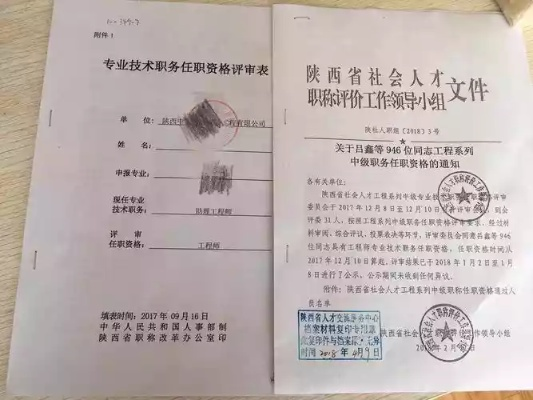 附件1
专业技术职务任职资格评审表
单位: 陕西中 工程有限公司
姓名:
申报专业:
现任专业
技术职务: 助理工程师
评审
任职资格: 工程师
填表时间: 2017年09月16日
中华人民共和国人事部制
陕西省职称改革办公室印
陕西省社会人才
职称评价工作领导小组
文件
陕社人职组〔2018〕3号
关于吕鑫等946位同志工程系列
中级职务任职资格的通知
各有关单位:
陕西省社会人才工程系列中级专业技术职务任职资格评审
委员会于2017年12月8日至12月10日召开评审会议,到会
评委31人,按照工程系列中级职务任职资格评审要求,经过材
料审阅、综合评议、投票表决等环节,评审委员会同意吕鑫等946
位同志具有工程师专业技术职务任职资格,任职资格时间从
2017年12月10日算起,评审结果已于2018年1月2日至1月
8日进行了公示,公示期间未收到任何异议。
附件:陕西省社会人才工程系列中级职称任职资格通过人
员名单
陕西省人才交流服务中心
档案材料复印专用章
此复印件与档案原件无异
时间 2018年4月9日
陕西省社会人才职称评价工作领导小组
2018年2月